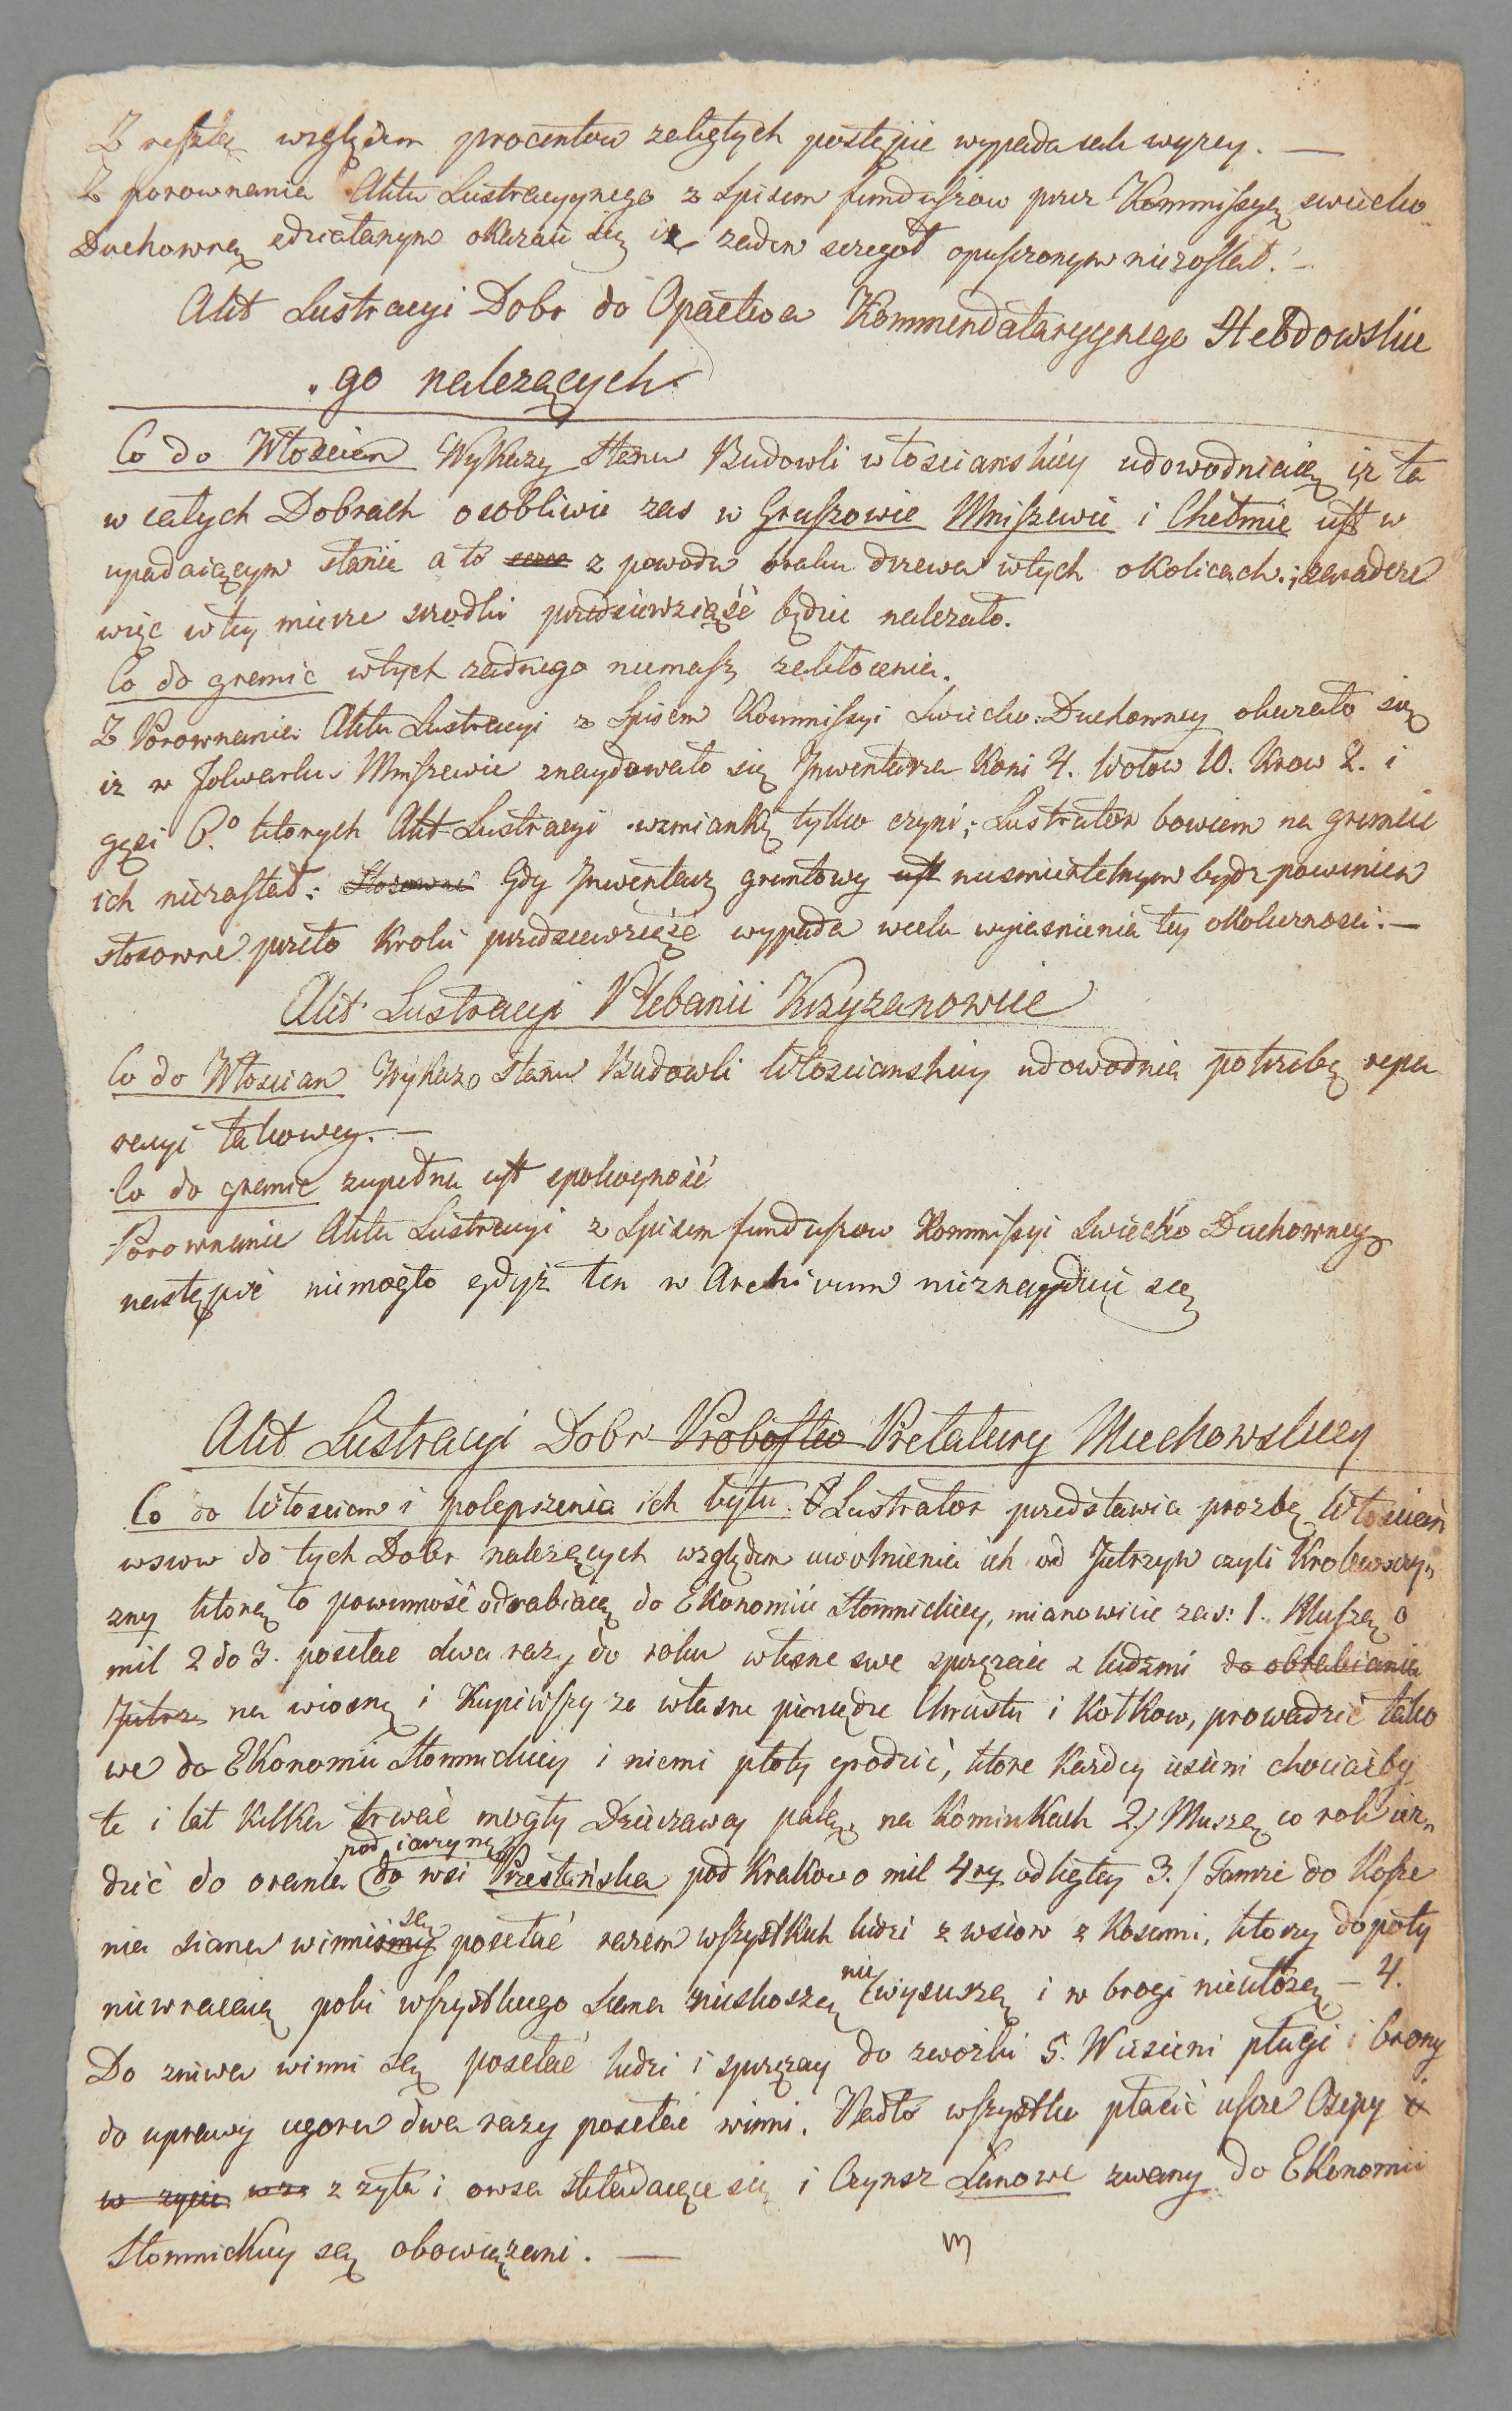 Z resztą względem procentow zaległych postępie wypada jak wyzey. —
Z porownania Aktu Lustracyynego z Spisem funduszow przez Kommissyą swiecko
Duchowną zdziałanym okazuie się iż zaden szczegoł opuszczonym niezostał. —
Akt Lustracyi Dobr do Opactwa Kommendataryynego Hebdowskie
„go nalezących.
Co do Włoscian Wykazy stanu Budowli włoscianskiey udowodniaią iz ta
w całych Dobrach osobliwie zas w Gruszowie Mniszewie i Chełmie iest w
upadaiącym stanie a to z powodu braku drzewa wtych okolicach; zaradcze
więc wtey mierze srodki przedsiewziąść będzie nalezało.
Co do granic wtych zadnego niemasz zakłocenia.
Z Porownania Aktu Lustracyi z Spisem Kommissyi Swiecko: Duchowney okazało się
iz w folwarku Mniszewie znaydowało się Inwentarza Koni 4. Wołow 10. Krow 2. i
gęsi 6.º ktorych Akt Lustracyi wzmiankę tylko czyni; Lustrator bowiem na gruncie
ich niezastał: Stosowne Gdy Inwentarz gruntowy iest niesmiertelnym bydz powinien
stosowne przeto kroki przedsiewziąść wypada wcelu wyiasnienia tey okolicznosci. —
Akt Lustracyi Plebanii Krzyzanowice
Co do Włoscian Wykaz stanu Budowli Włoscianskiey udowodnia potrzebę repa
racyi takowey. —
Co do granic zupełna iest spokoyność
Porownanie Aktu Lustracyi z Spisem funduszow Kommissyi Swiecko Duchowney
nastąpić niemogło gdyż ten w Archivum nieznayduie się
Akt Lustracyi Dobr Probostwa Prelatury Miechowskiey
Co do Włoscian i polepszenia ich bytu. Lustrator przedstawia prozbę Włoscian
wsiow do tych Dobr nalezących względem uwolnienia ich od Jutrzyn czyli Krolewszczy„
zny ktorą to powinność odrabiaią do Ekonomii Słomnickiey, mianowicie zas: 1. Muszą o
mil 2 do 3. posełac dwa razy do roku własne swe sprzęzaie z ludzmi do obrabiania
Jutrz na wiosnę i Kupiwszy za własne pieniądze Chrustu i Kołkow, prowadzić tako
we do Ekonomii Słomnickiey i niemi płoty grodzić, ktore Kazdey iesieni chociażby
te i lat kilka trwać mogły Dzierzawcy palą na Kominkach 2.) Muszą co rok iez„
dzić do orania pod iarzynę do wsi Prestańska pod Krakow o mil 4ry odległey 3.) Tamze do kosze
nia siana winni są posełać razem wszystkich ludzi z wsiow z Kosami, ktorzy dopoty
niewracaią poki wszystkiego siana nieskoszą nie wysuszą i w brogi nieułożą — 4.
Do zniwa winni są posełać ludzi i sprzęzay do zwożki 5. W iesieni pługi i brony
do uprawy ugoru dwa razy posełać winni. Nadto wszystko płacić iescze Osepy i
w zycie z zyta i owsa składaiące się i Czynsz Lanowe zwany do Ekonomii
Słomnickiey są obowiązani. —